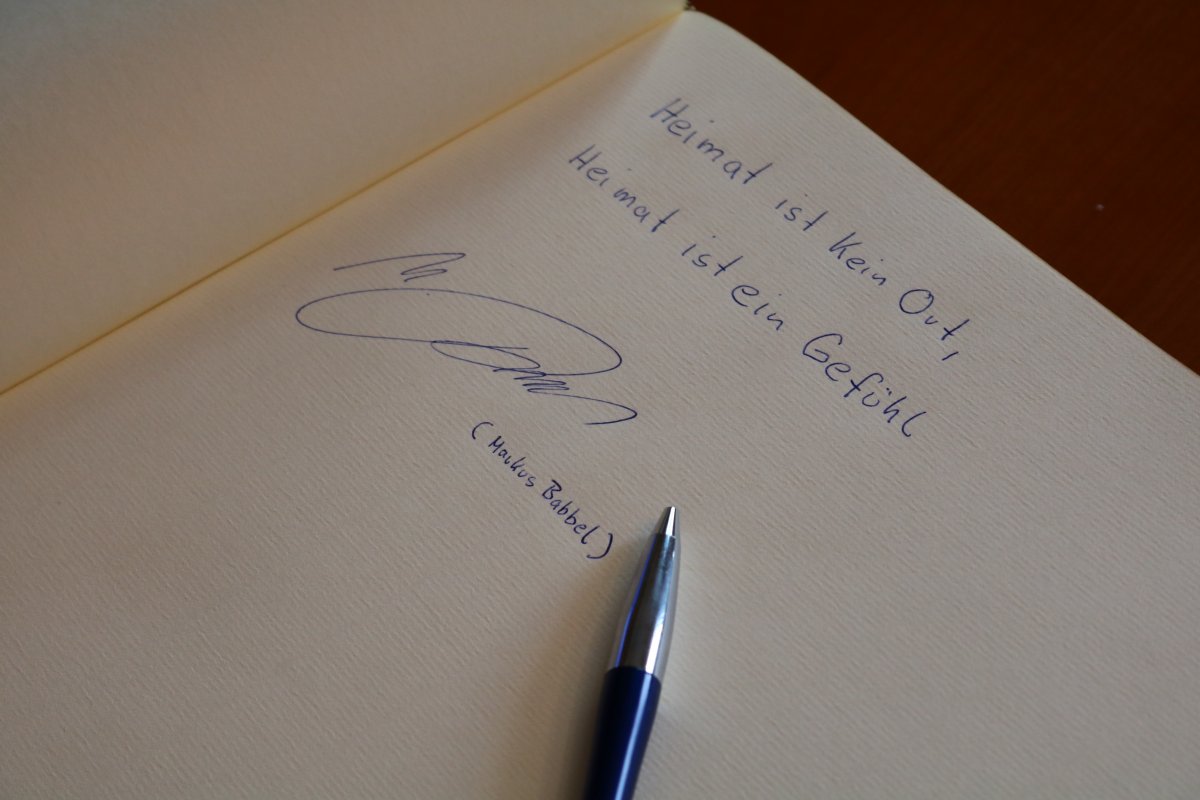 Heimat ist kein Ort,
Heimat ist ein Gefühl
(Markus Babbel)